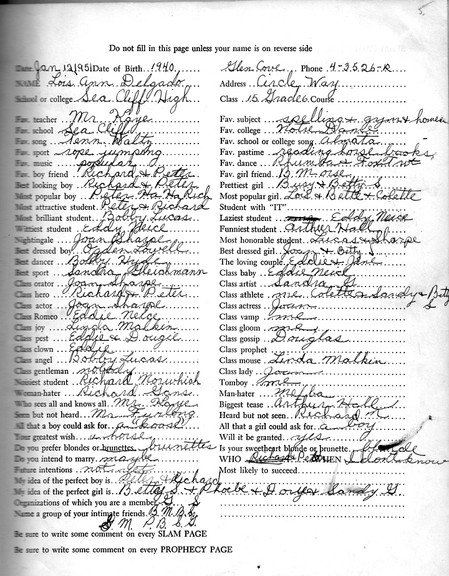 5.
Do not fill in this page unless your name is on reverse side
Date Jan 12 1951 Date of Birth 1940 Glen Cove Phone 4-3526-R
NAME Lois Ann Delgado Address Circle Way
School or college Sea Cliff High Class 15 Grade 6 Course
Fav. teacher Mr. Kaye Fav. subject spelling & gym &
Fav. school Sea Cliff Fav. college Notre Dame
Fav. song Tenn. Waltz School or college song Almata
Fav. sport rope jumping Fav. pastime reading horse books
Fav. music popular Fav. dance Rhumba & Foxtrot
Fav. boy friend Richard & Peter Fav. girl friend B. Morse
Best looking boy Richard & Peter Prettiest girl & Betty S.
Most popular boy Peter Most popular girl Lois & Betty & Colette
Most attractive student Peter & Richard Student with "IT"
Most brilliant student Bobby Lucas Laziest student Eddy Neice
Wittiest student Eddy Neice Funniest student Arthur Hall
Nightingale Joan Sharpe Most honorable student Lucas & Sharpe
Best dressed boy Lovell Best dressed girl Joan & Betty S.
Best Bobby The loving couple Eddie &
Best sport Sandra Gleichmann Class baby Eddie Neice
Class orator Joan Sharpe Class artist Sandra G.
Class hero Richard & Peter Class athlete me, Colette & Sandy & Betty S
Class actor Joan Sharpe Class actress Joan
Class Romeo Eddie Neice Class vamp me
Class joy Linda Malkin Class gloom me
Class pest Eddie & Dougie Class gossip Douglas
Class clown Eddie Class prophet
Class angel Bobby Lucas Class mouse Linda Malkin
Class gentleman nobody Class lady Joan
Noisiest student Richard Tomboy me
Woman-hater Richard Man-hater
Who sees all and knows all Mr. Kaye Biggest tease Arthur Hall
Seen but not heard Mr. Furlong Heard but not seen Richard
All that a boy could ask for a All that a girl could ask for a boy
Your greatest wish a horse Will it be granted yes
Do you prefer blondes or brunettes brunettes Is your sweetheart blonde or brunette
Do you intend to marry maybe WHO Richard Peter WHEN I don't know
Future intentions not yet Most likely to succeed
My idea of the perfect boy is Peter & Richard
My idea of the perfect girl is Betty S. & Phoebe & Dorye & Sandy G.
Organizations of which you are a member G. S.
Name a group of your intimate friends B.M. B.S.
G. M. P.B. S.G.
Be sure to write some comment on every SLAM PAGE
Be sure to write some comment on every PROPHECY PAGE